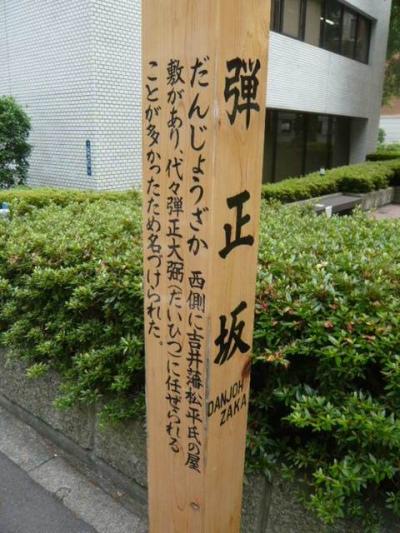 弾正坂
DANJOH
ZAKA
だんじょうざか 西側に吉井藩松平氏の屋
敷があり、代々弾正大弼(だいひつ)に任ぜられる
ことが多かったため名づけられた。